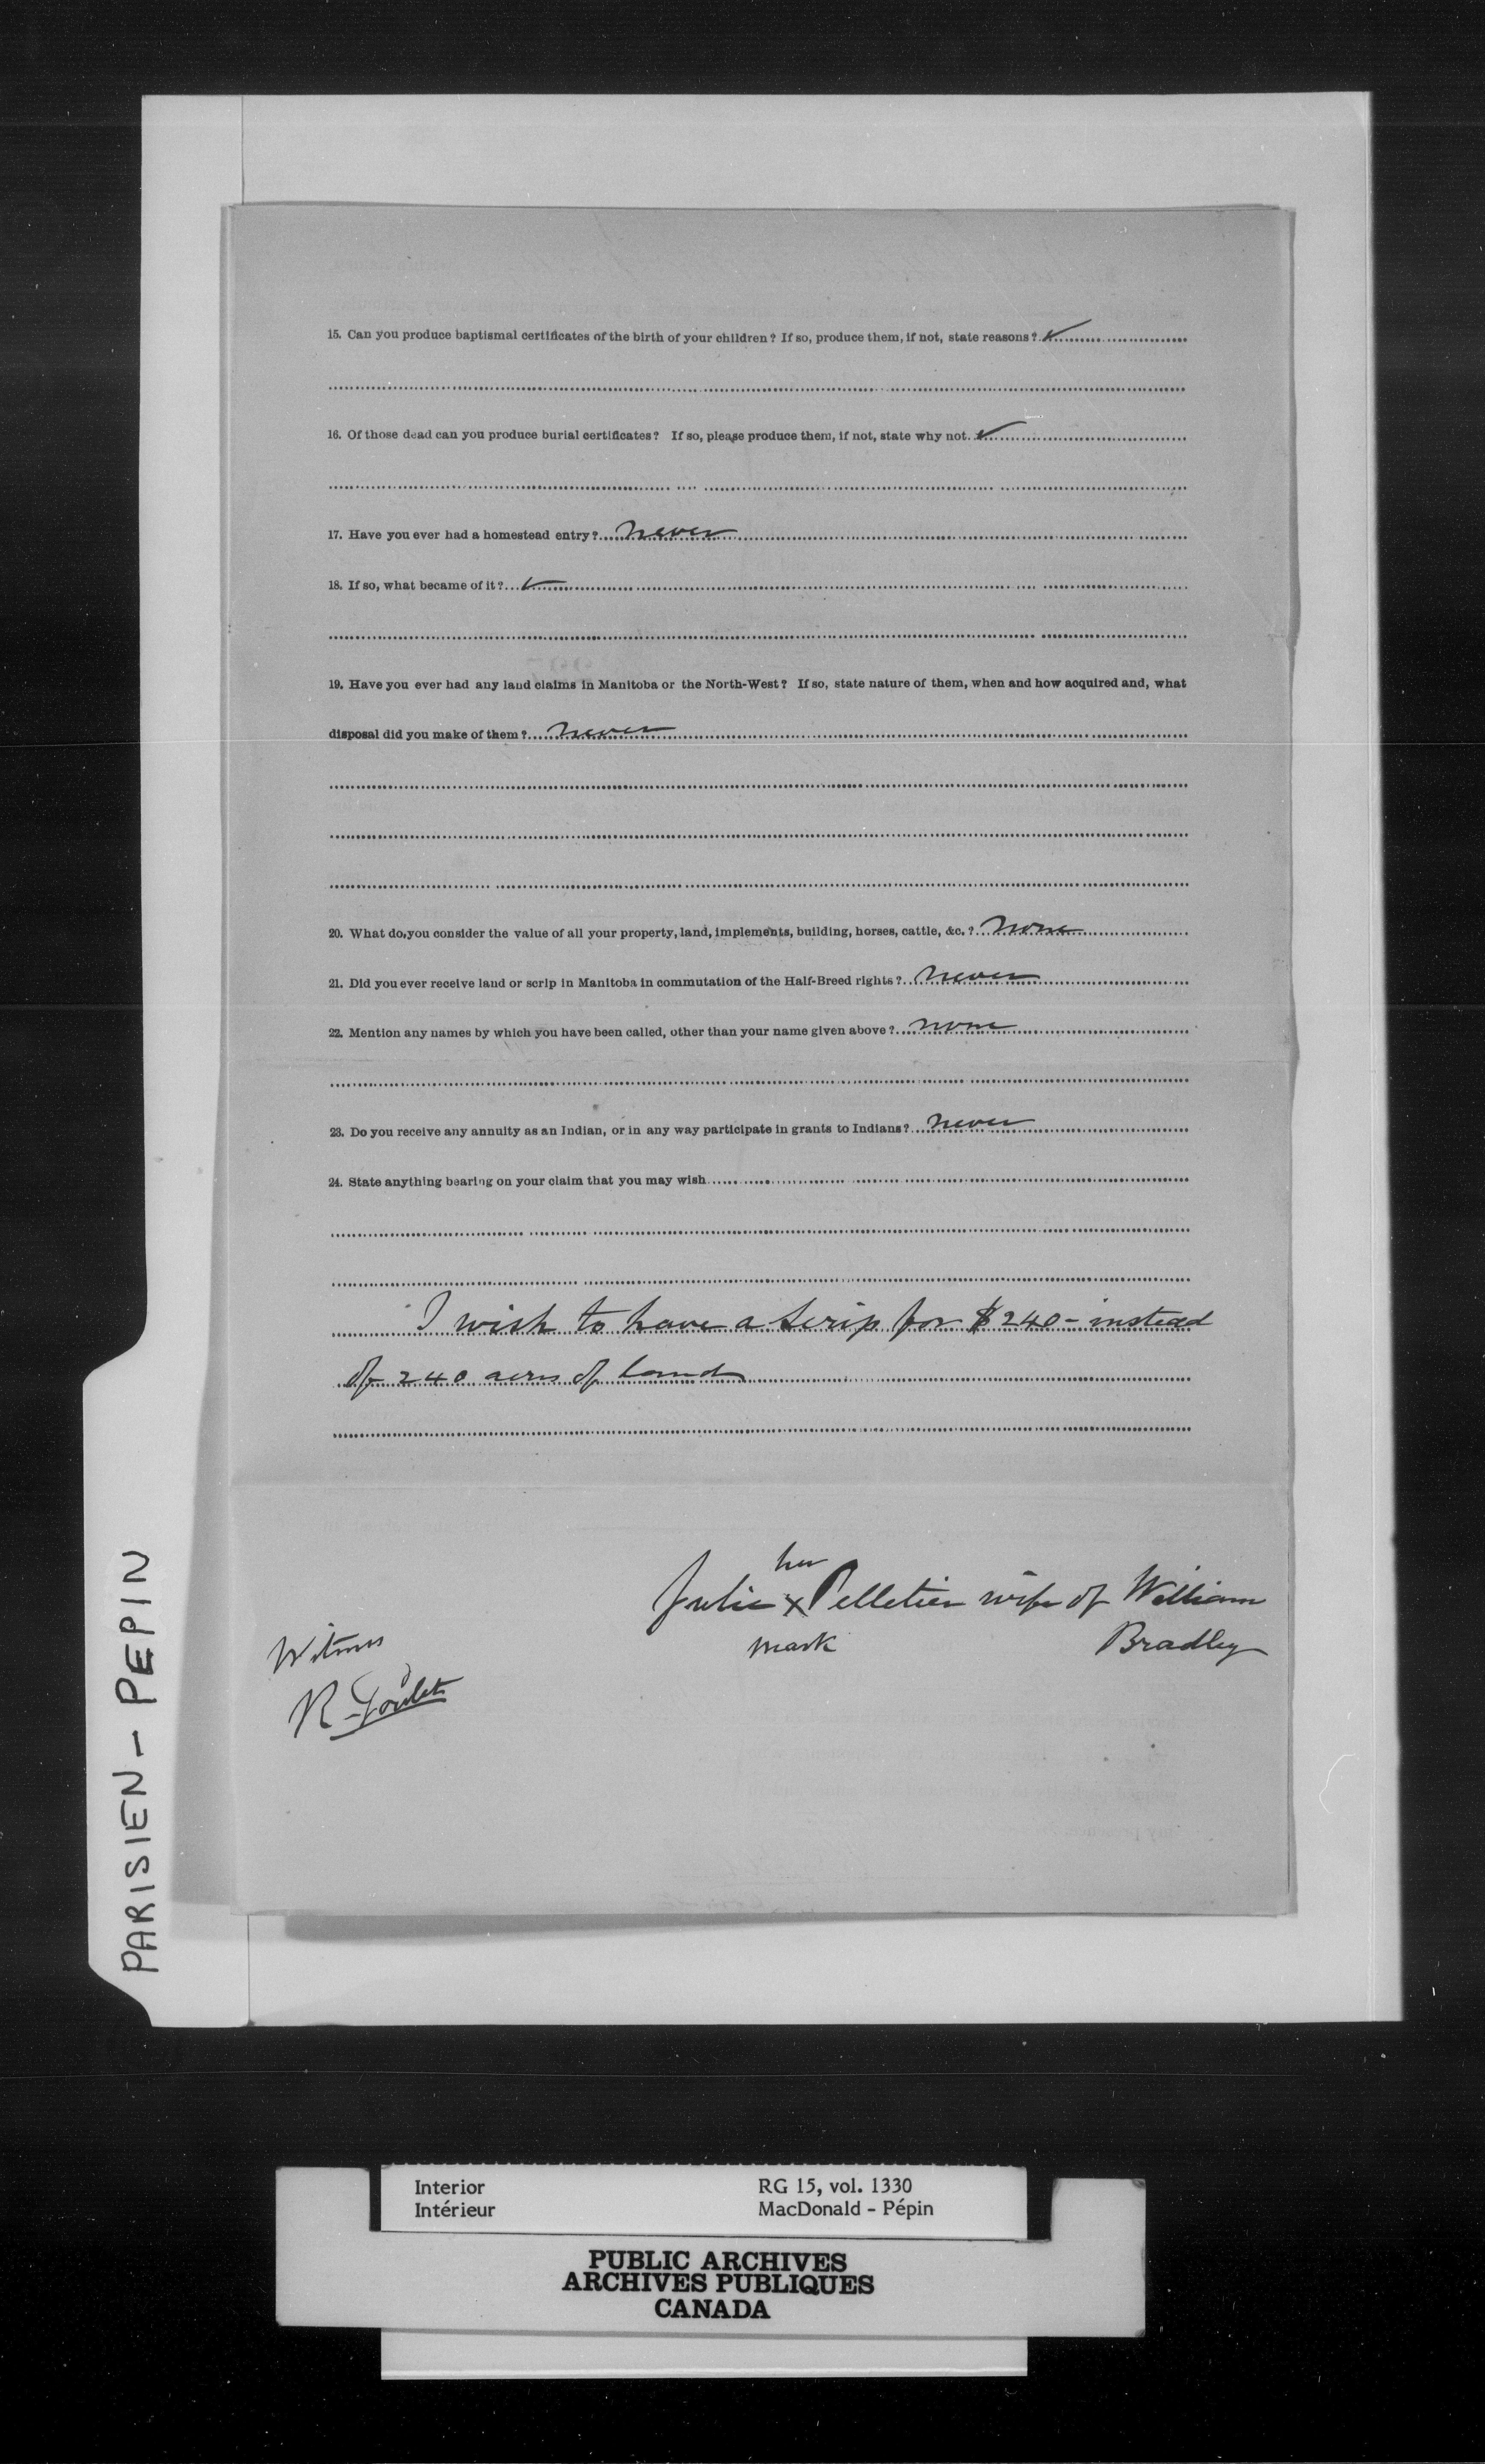 15. Can you produce baptismal certificates of the birth of your children? If so, produce them, if not, state reasons? ✓
16. Of those dead can you produce burial certificates? If so, please produce them, if not, state why not. ✓
17. Have you ever had a homestead entry? never
18. If so, what became of it? ✓
19. Have you ever had any land claims in Manitoba or the North-West? If so, state nature of them, when and how acquired and, what
disposal did you make of them? never
20. What do you consider the value of all your property, land, implements, building, horses, cattle, &c.? none
21. Did you ever receive land or scrip in Manitoba in commutation of the Half-Breed rights? never
22. Mention any names by which you have been called, other than your name given above? none
23. Do you receive any annuity as an Indian, or in any way participate in grants to Indians? never
24. State anything bearing on your claim that you may wish
I wish to have a scrip for $240- instead
of 240 acres of land
her
Julie x Pelletier wife of William
mark Bradley
Witness
R. Goulet
PARISIEN - PEPIN
Interior RG 15, vol. 1330
Intérieur MacDonald - Pépin
PUBLIC ARCHIVES
ARCHIVES PUBLIQUES
CANADA